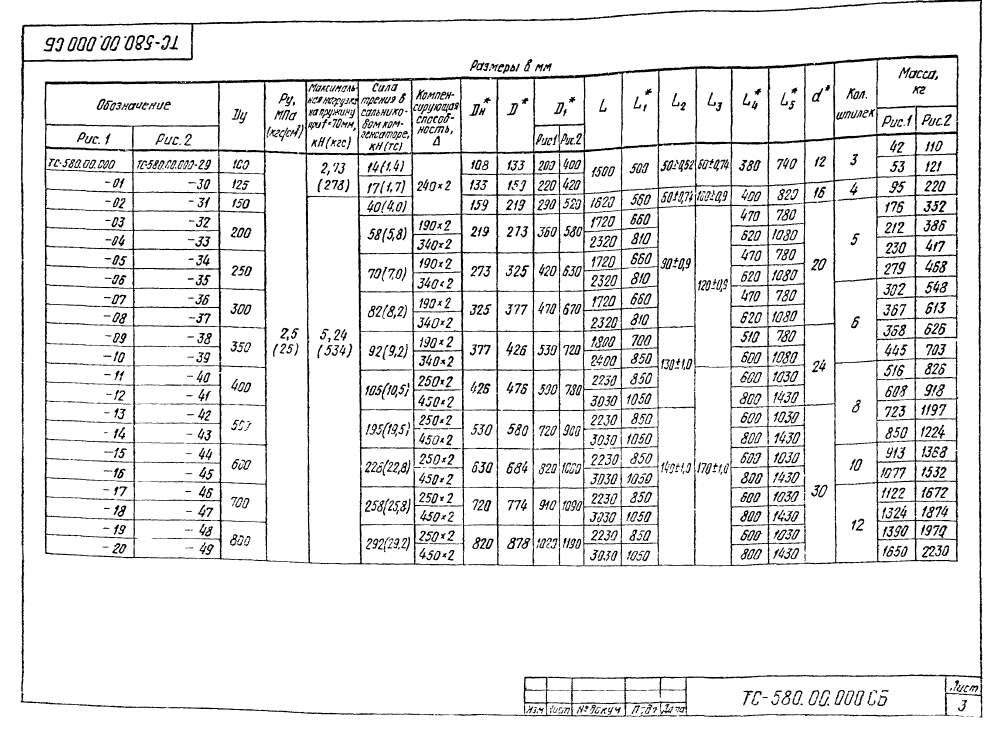 ТС-580.00.000 СБ
Размеры в мм
Обозначение Dy Ру, МПа (кгс/см²) Максимальная нагрузка на пружину при f=70мм, кН (кгс) Сила трения в сальниковом компенсаторе, кН (тс) Компенсирующая способность, Δ Dн* D* D₁* L L₁* L₂ L₃ L₄* L₅* d* Кол. шпилек Масса, кг
Рис. 1 Рис. 2 Рис.1 Рис.2 Рис.1 Рис.2
ТС-580.00.000 ТС-580.00.000-29 100 2,5 (25) 2,73 (278) 14(1,4) 240×2 108 133 200 400 1500 500 50±0,52 60±0,74 380 740 12 3 42 110
-01 -30 125 17(1,7) 133 159 220 420 53 121
-02 -31 150 5,24 (534) 40(4,0) 159 219 290 520 1620 560 60±0,74 100±0,9 400 820 16 4 95 220
-03 -32 200 58(5,8) 190×2 219 273 360 580 1720 660 90±0,9 120±0,9 470 780 20 5 176 352
-04 -33 340×2 2320 810 620 1080 212 386
-05 -34 250 70(7,0) 190×2 273 325 420 630 1720 660 470 780 230 417
-06 -35 340×2 2320 810 620 1080 279 468
-07 -36 300 82(8,2) 190×2 325 377 470 670 1720 660 470 780 6 302 548
-08 -37 340×2 2320 810 620 1080 367 613
-09 -38 350 92(9,2) 190×2 377 426 530 720 1800 700 130±1,0 510 780 24 358 626
-10 -39 340×2 2400 850 600 1080 445 703
-11 -40 400 105(10,5) 250×2 426 476 590 780 2230 850 170±1,0 600 1030 8 516 826
-12 -41 450×2 3030 1050 800 1430 608 918
-13 -42 500 195(19,5) 250×2 530 580 720 900 2230 850 140±1,0 600 1030 30 723 1197
-14 -43 450×2 3030 1050 800 1430 850 1224
-15 -44 600 228(22,8) 250×2 630 684 820 1000 2230 850 600 1030 10 913 1368
-16 -45 450×2 3030 1050 800 1430 1077 1532
-17 -46 700 258(25,8) 250×2 720 774 910 1090 2230 850 600 1030 12 1122 1672
-18 -47 450×2 3030 1050 800 1430 1324 1874
-19 -48 800 292(29,2) 250×2 820 878 1020 1190 2230 850 600 1030 1390 1970
-20 -49 450×2 3030 1050 800 1430 1650 2230
Изм. Лист № докум Подп Дата
ТС-580.00.000 СБ
Лист
3